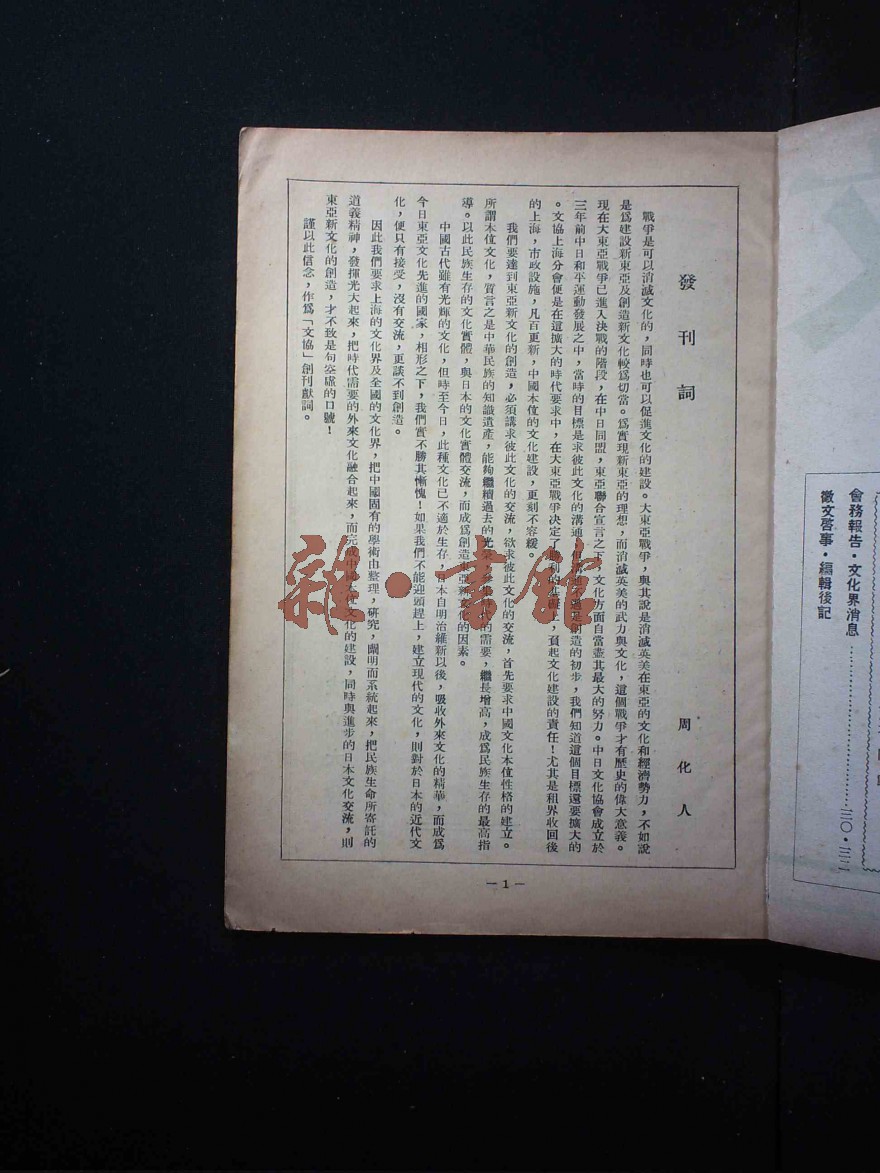 發刊詞
周化人
戰爭是可以消滅文化的，同時也可以促進文化的建設。大東亞戰爭，與其說是消滅英美在東亞的文化和經濟勢力，不如說
是爲建設新東亞及創造新文化較爲切當。爲實現新東亞的理想，而消滅英美的武力與文化，這個戰爭才有歷史的偉大意義。
現在大東亞戰爭已進入決戰的階段，在中日同盟，東亞聯合宣言之下，文化方面自當盡其最大的努力。中日文化協會成立於
三年前中日和平運動發展之中，當時的目標是求彼此文化的溝通，但溝通不過是創造的初步，我們知道這個目標還要擴大的
。文協上海分會便是在這擴大的時代要求中，在大東亞戰爭決定了勝利的基礎上，負起文化建設的責任！尤其是租界收回後
的上海，市政設施，凡百更新，中國本位的文化建設，更刻不容緩。
我們要達到東亞新文化的創造，必須講求彼此文化的交流，欲求彼此文化的交流，首先要求中國文化本位性格的建立。
所謂本位文化，質言之是中華民族的知識遺產，能夠繼續過去的光榮，時代的需要，繼長增高，成爲民族生存的最高指
導。以此民族生存的文化實體，與日本的文化實體交流，而成爲創造東亞新文化的因素。
中國古代雖有光輝的文化，但時至今日，此種文化已不適於生存，日本自明治維新以後，吸收外來文化的精華，而成爲
今日東亞文化先進的國家，相形之下，我們實不勝其慚愧！如果我們不能迎頭趕上，建立現代的文化，則對於日本的近代文
化，便只有接受，沒有交流，更談不到創造。
因此我們要求上海的文化界及全國的文化界，把中國固有的學術由整理，研究，闡明而系統起來，把民族生命所寄託的
道義精神，發揮光大起來，把時代需要的外來文化融合起來，而完成中國本位文化的建設，同時與進步的日本文化交流，則
東亞新文化的創造，才不致是句空虛的口號！
謹以此信念，作爲「文協」創刊獻詞。
—1—
會務報告・文化界消息……三〇・三二
徵文啓事・編輯後記
雜・書館